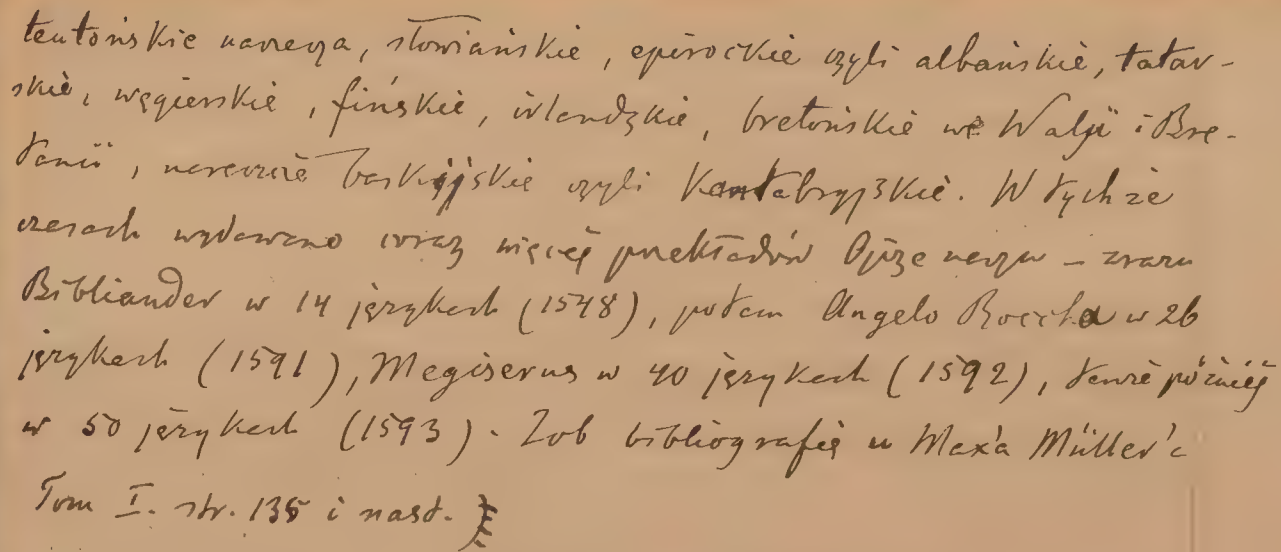 teutońskie narzecza, słowiańskie, epirockie czyli albańskie, tatar-
skie, węgierskie, fińskie, irlandzkie, bretońskie we Walji i Bre-
tanii, narzecze baskijskie czyli Kantabryjskie. W tychże
czasach wydawano coraz więcéj przekładów Ojcze naszu – zrazu
Bibliander w 14 językach (1548), potem Angelo Roccha w 26
językach (1591), Megiserus w 40 językach (1592), tenże późniéj
w 50 językach (1593). Zob bibliografię u Max'a Müller'a
Tom I. str. 135 i nast.